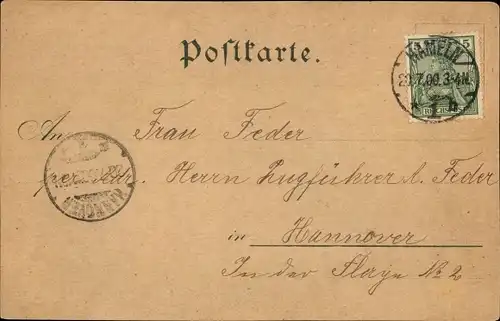 Postkarte.
5
HAMELN
REICHSPOST
An Frau Feder
per Adr. Herrn Zugführer A. Feder
in Hannover
In der Flage No 2
HANNOVER